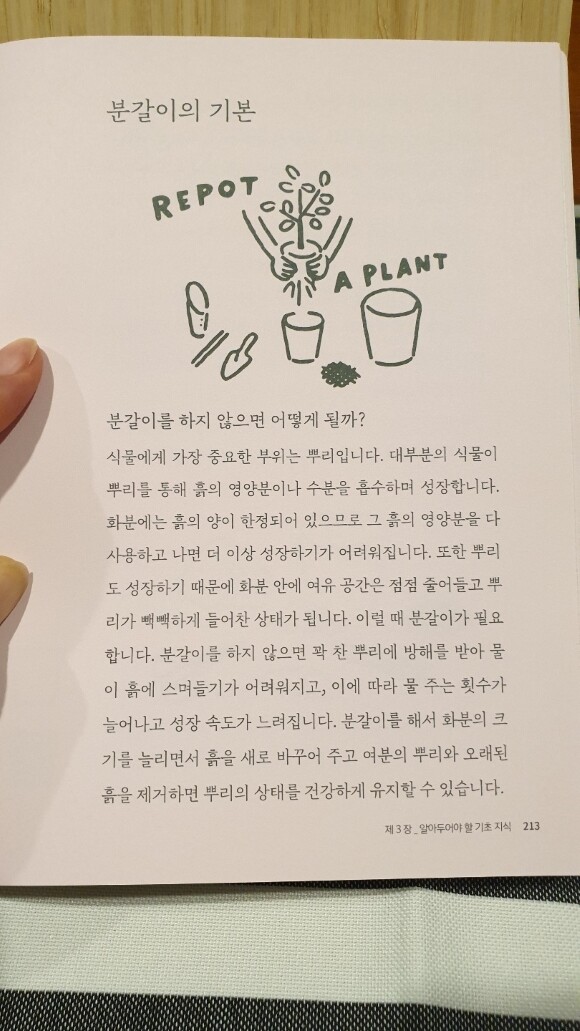 분갈이의 기본
REPOT
A PLANT
분갈이를 하지 않으면 어떻게 될까?
식물에게 가장 중요한 부위는 뿌리입니다. 대부분의 식물이
뿌리를 통해 흙의 영양분이나 수분을 흡수하며 성장합니다.
화분에는 흙의 양이 한정되어 있으므로 그 흙의 영양분을 다
사용하고 나면 더 이상 성장하기가 어려워집니다. 또한 뿌리
도 성장하기 때문에 화분 안에 여유 공간은 점점 줄어들고 뿌
리가 빽빽하게 들어찬 상태가 됩니다. 이럴 때 분갈이가 필요
합니다. 분갈이를 하지 않으면 꽉 찬 뿌리에 방해를 받아 물
이 흙에 스며들기가 어려워지고, 이에 따라 물 주는 횟수가
늘어나고 성장 속도가 느려집니다. 분갈이를 해서 화분의 크
기를 늘리면서 흙을 새로 바꾸어 주고 여분의 뿌리와 오래된
흙을 제거하면 뿌리의 상태를 건강하게 유지할 수 있습니다.
제 3 장 _ 알아두어야 할 기초 지식 213